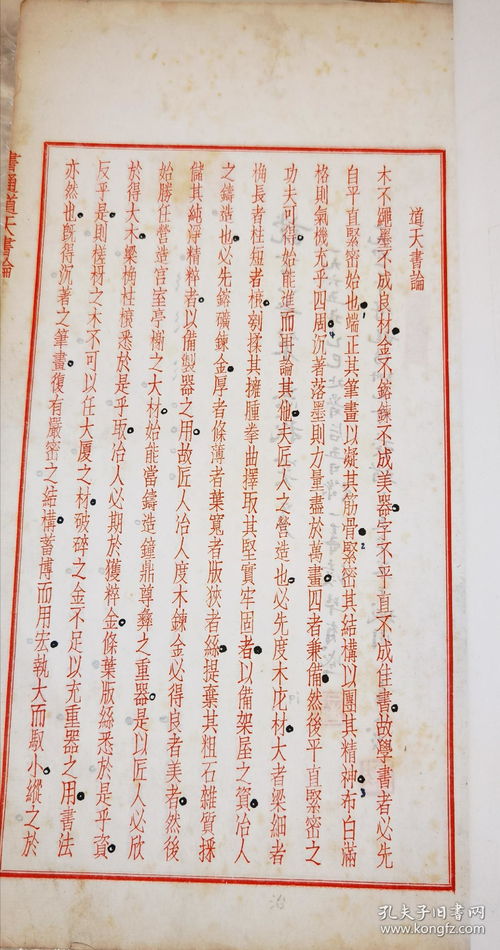 道天書論
木不繩墨不成良材金不鎔鍊不成美器字不平直不成佳書故學書者必先
自平直緊密始也端正其筆畫以凝其筋骨緊密其結構以團其精神布白滿
格則氣機充乎四周沉著落墨則力量盡於萬畫四者兼備然後平直緊密之
功夫可得始能進而再論其他夫匠人之營造也必先度木庀材大者梁細者
桷長者柱短者橛刻揉其擁腫拳曲擇取其堅實牢固者以備架屋之資冶人
之鑄造也必先鎔礦鍊金厚者條薄者葉寬者版狹者絲提棄其粗石雜質採
儲其純淨精粹者以備製器之用故匠人冶人度木鍊金必得良者美者然後
始勝任營造宮室亭榭之大材始能當鑄造鐘鼎尊彝之重器是以匠人必欣
於得大木梁桷柱橑悉於是乎取冶人必期於獲粹金條葉版絲悉於是乎資
反乎是則樸枒之木不可以任大厦之材破碎之金不足以充重器之用書法
亦然也旣得沉著之筆畫復有嚴密之結構蓄博而用宏執大而馭小縱之於
書通道天書論
孔夫子旧书网
www.kongfz.com